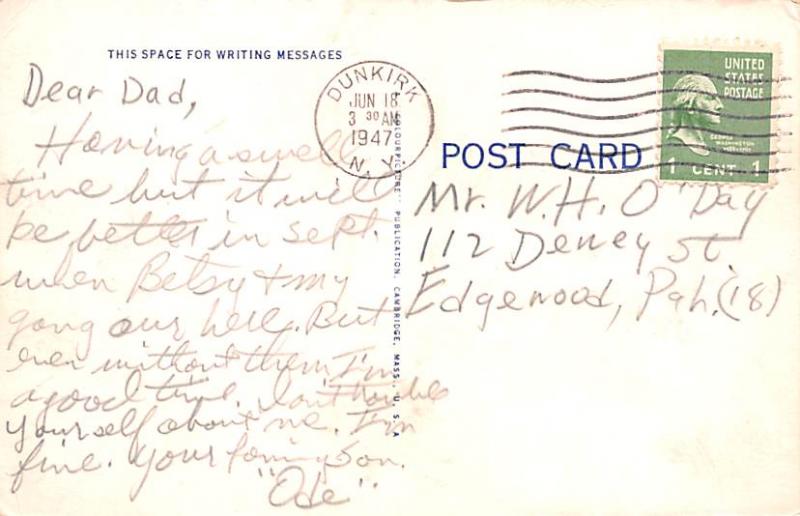 THIS SPACE FOR WRITING MESSAGES
Dear Dad,
Having a swell
time but it will
be better in Sept.
when Betsy + my
gang our here. But
even without them I'm
a good time. Don't trouble
yourself about me. I'm
fine. Your loving Son.
"Ode".
DUNKIRK
JUN 18
3 30 AM
1947
N.Y.
"COLOURPICTURE" PUBLICATION, CAMBRIDGE, MASS., U.S.A
POST CARD
UNITED
STATES
POSTAGE
GEORGE
WASHINGTON
1 CENT 1
Mr. W.H. O'Day
112 Dewey St.
Edgewood, Pgh. (18)